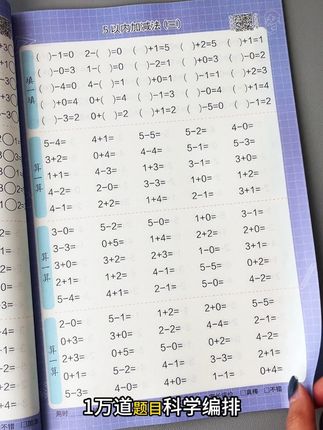 5以内加减法(三)
填一填
( )-1=0 2-( )=0 ( )+1=5 ( )+2=5 ( )+1=1
( )-0=3 1-( )=0 ( )-2=2
( )-4=0 ( )+1=4
( )+0=4 0+( )=4
( )-3=2 0+( )=2 ( )+1=2 ( )-5=0 ( )-1=2
算一算
5-4= 4+1= 5-5= 5-2= 4-0=
3+2= 0+4= 4-4=
1+1= 4-3= 1+3= 3-1=
4-2= 2-0= 3-3= 1+3= 0+1=
4-1= 2+2= 1+4= 2-1= 3+1=
算一算
3-0= 5-2= 5-0= 1+0= 3-1=
3-3= 0+5= 1+4= 2+2= 2+0=
3+0= 3+2= 2+3= 1-0= 3+1=
2+1= 1+2= 4-1= 5-5= 0+0=
5-4= 4+1= 2-1= 5-0= 4-4=
算一算
2-0= 5-1= 1+2= 2+0= 5-5=
0+3= 3+0= 2-2= 4-4= 2-1=
3+3= 0+5= 5-0= 4-2=
0+1= 2+2= 2-2= 4-4=
5-3= 4-0= 4+0= 1-1= 0+4=
1万道题目科学编排
用时
真棒
不错